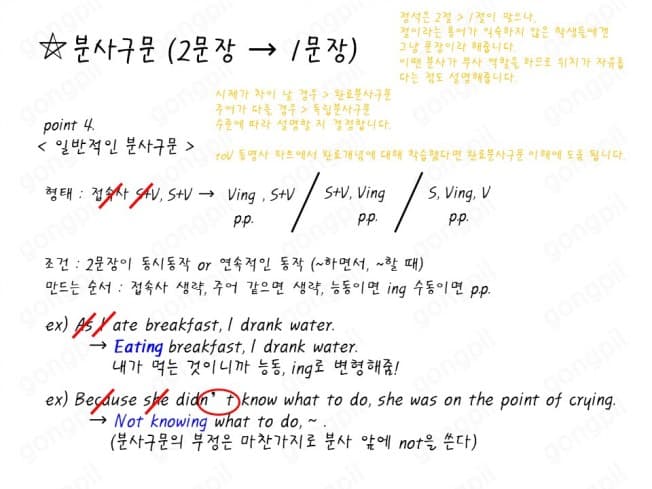 ☆ 분사구문 (2문장 → 1문장)
정석은 2절 > 1절이 맞으나,
절이라는 용어가 익숙하지 않은 학생들에겐
그냥 문장이라 해줍니다.
이땐 분사가 부사 역할을 하므로 위치가 자유롭
다는 점도 설명해줍니다.
시제가 차이 날 경우 > 완료분사구문
주어가 다를 경우 > 독립분사구문
수준에 따라 설명할 지 결정합니다.
toV 동명사 파트에서 완료개념에 대해 학습했다면 완료분사구문 이해에 도움 됩니다.
point 4.
< 일반적인 분사구문 >
형태 : 접속사 S+V, S+V → Ving , S+V / S+V, Ving / S, Ving, V
p.p. p.p. p.p.
조건 : 2문장이 동시동작 or 연속적인 동작 (~하면서, ~할 때)
만드는 순서 : 접속사 생략, 주어 같으면 생략, 능동이면 ing 수동이면 p.p.
ex) As I ate breakfast, I drank water.
→ Eating breakfast, I drank water.
내가 먹는 것이니까 능동, ing로 변형해줌!
ex) Because she didn't know what to do, she was on the point of crying.
→ Not knowing what to do, ~ .
(분사구문의 부정은 마찬가지로 분사 앞에 not을 쓴다)
gongpil